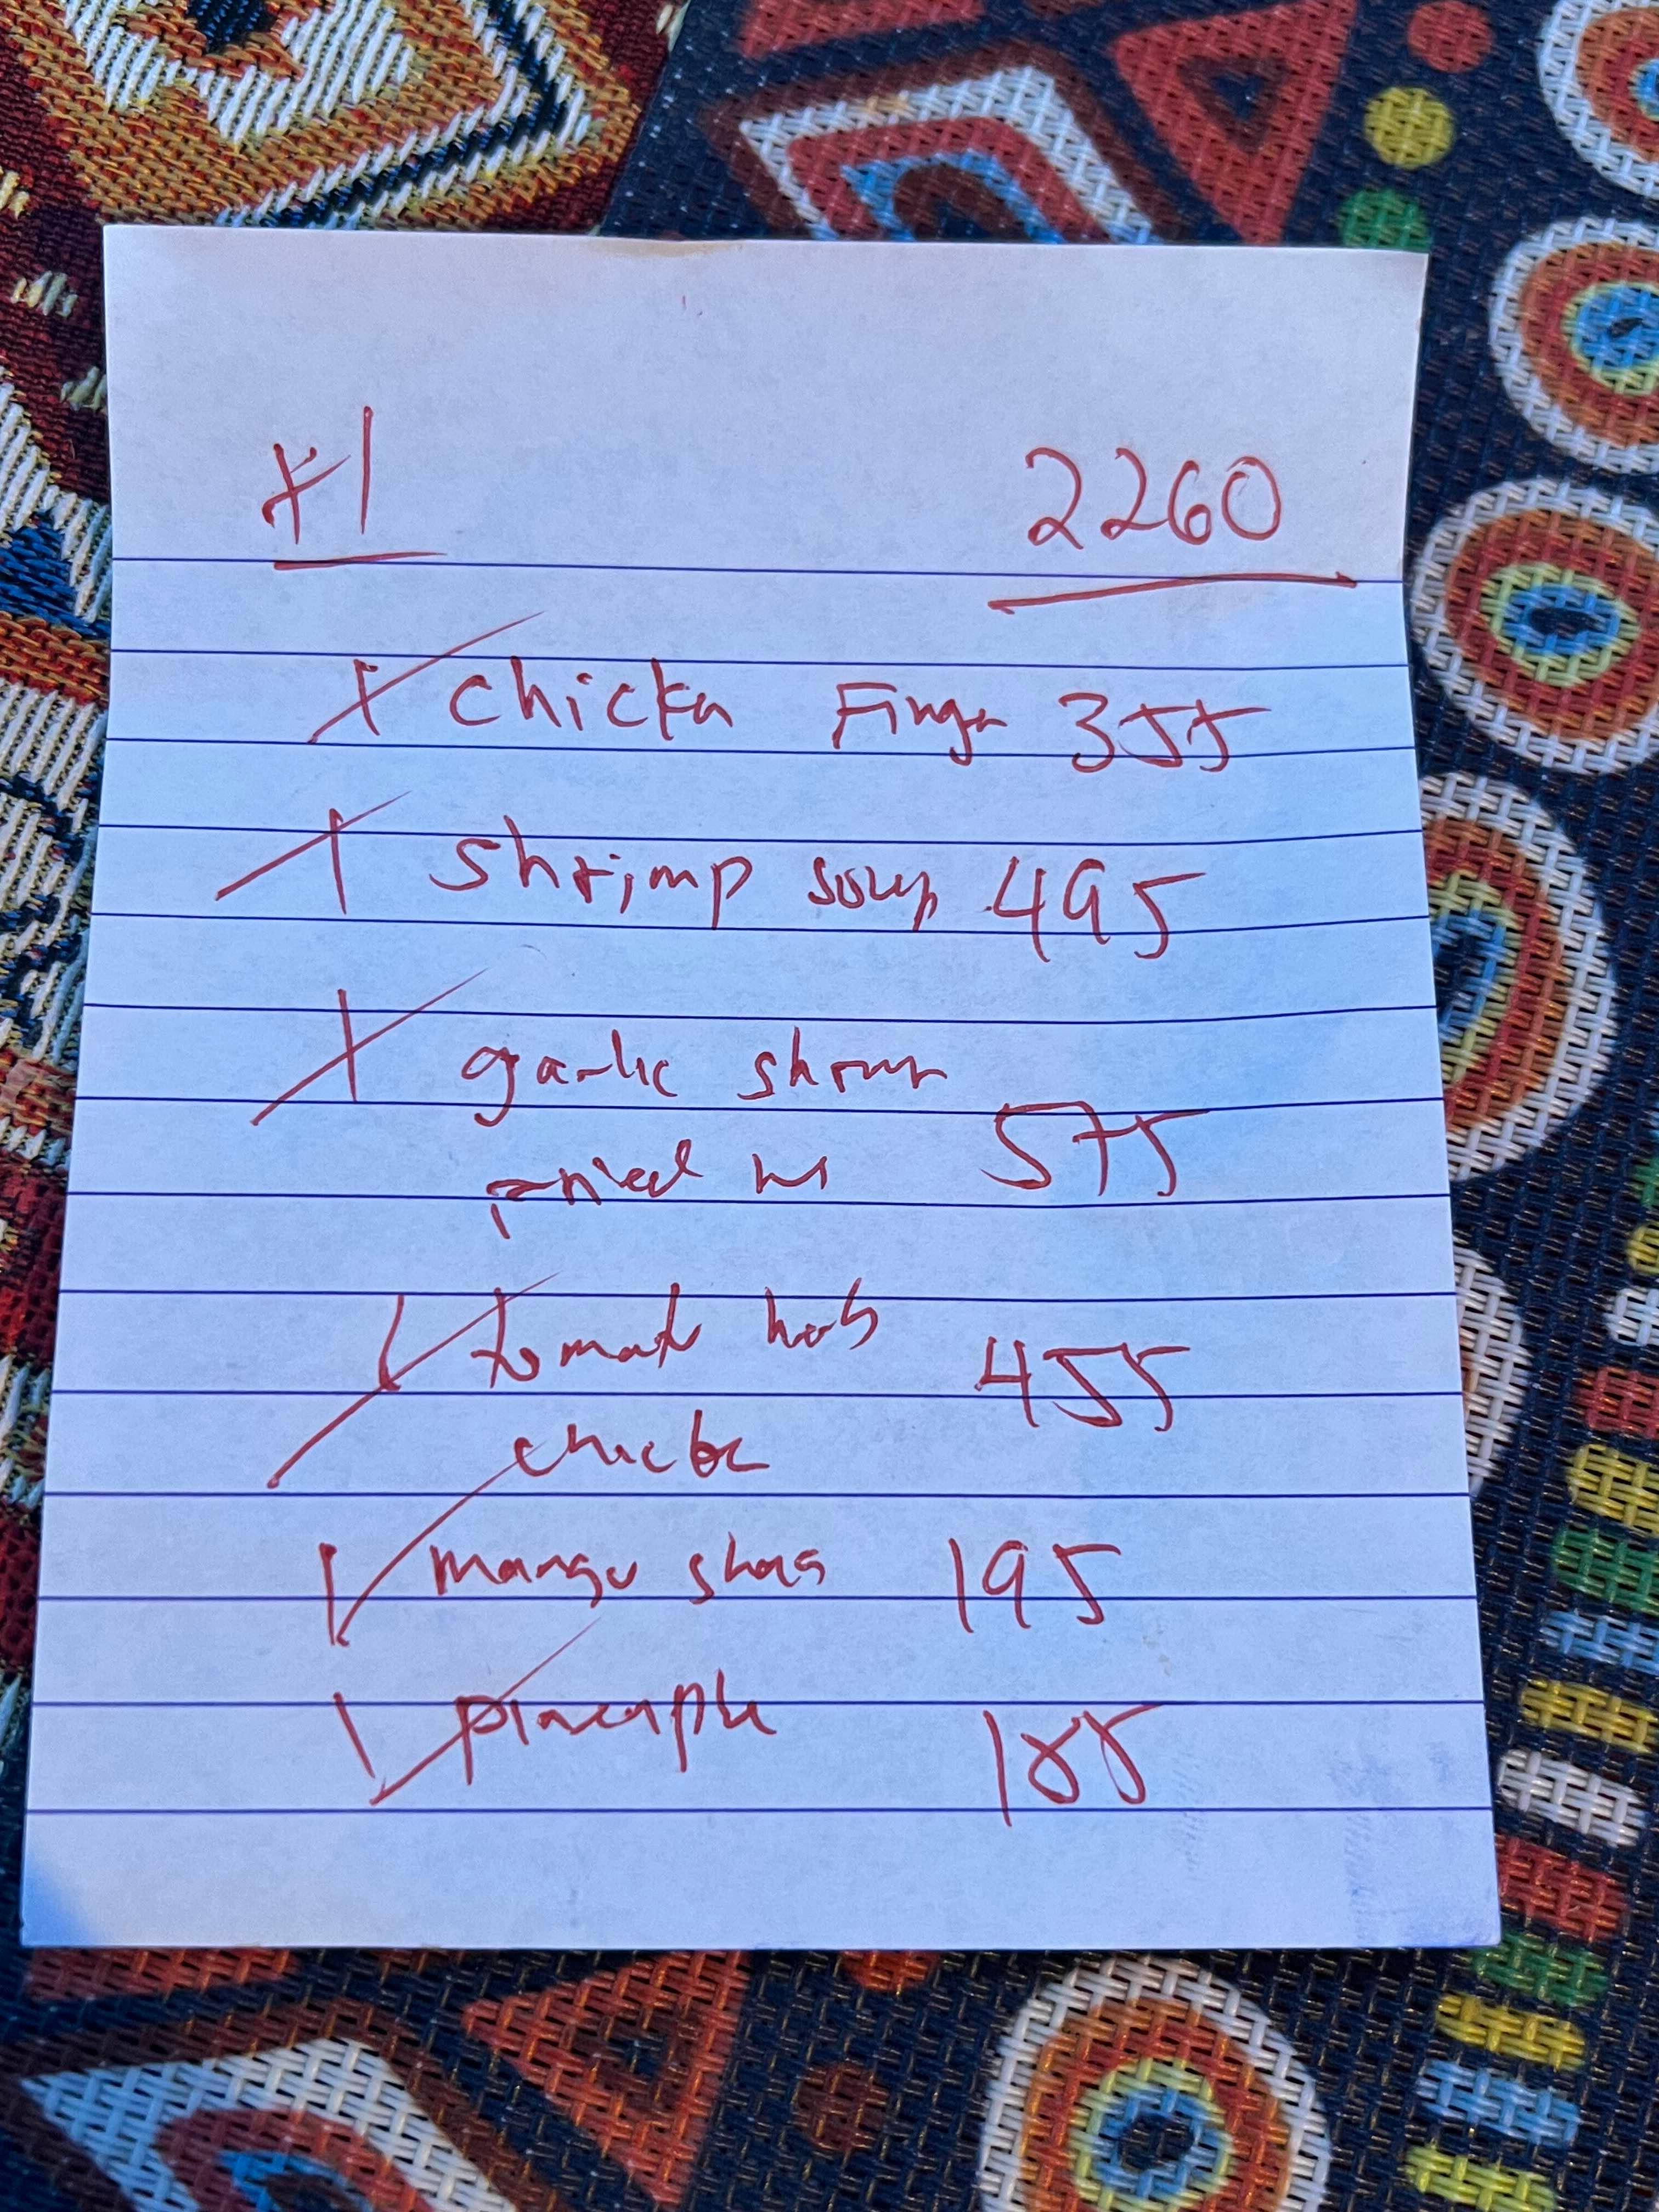 #1 2260
1 chicken Finger 355
1 shrimp soup 495
1 garlic shrimp
fried 575
1 tomato herb 455
chicken
1 mango shak 195
1 pineapple 185